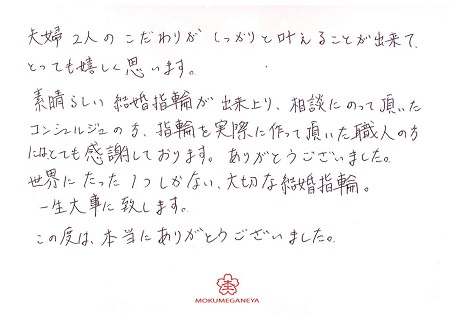 夫婦2人のこだわりがしっかりと叶えることが出来て、
とっても嬉しく思います。
素晴らしい結婚指輪が出来上り、相談にのって頂いた
コンシェルジュの方、指輪を実際に作って頂いた職人の方
にはとても感謝しております。ありがとうございました。
世界にたった1つしかない、大切な結婚指輪。
一生大事に致します。
この度は、本当にありがとうございました。
MOKUMEGANEYA